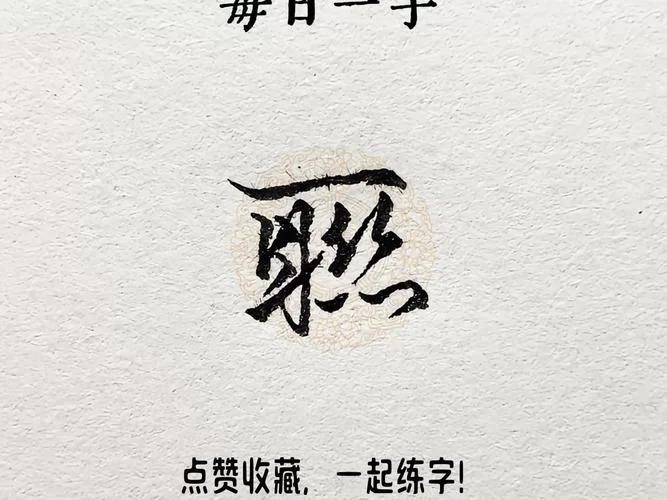 每日一字
聯
点赞收藏，一起练字!